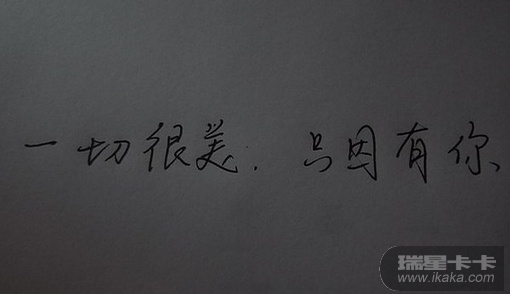 一切很美.只因有你、
瑞星卡卡
www.ikaka.com